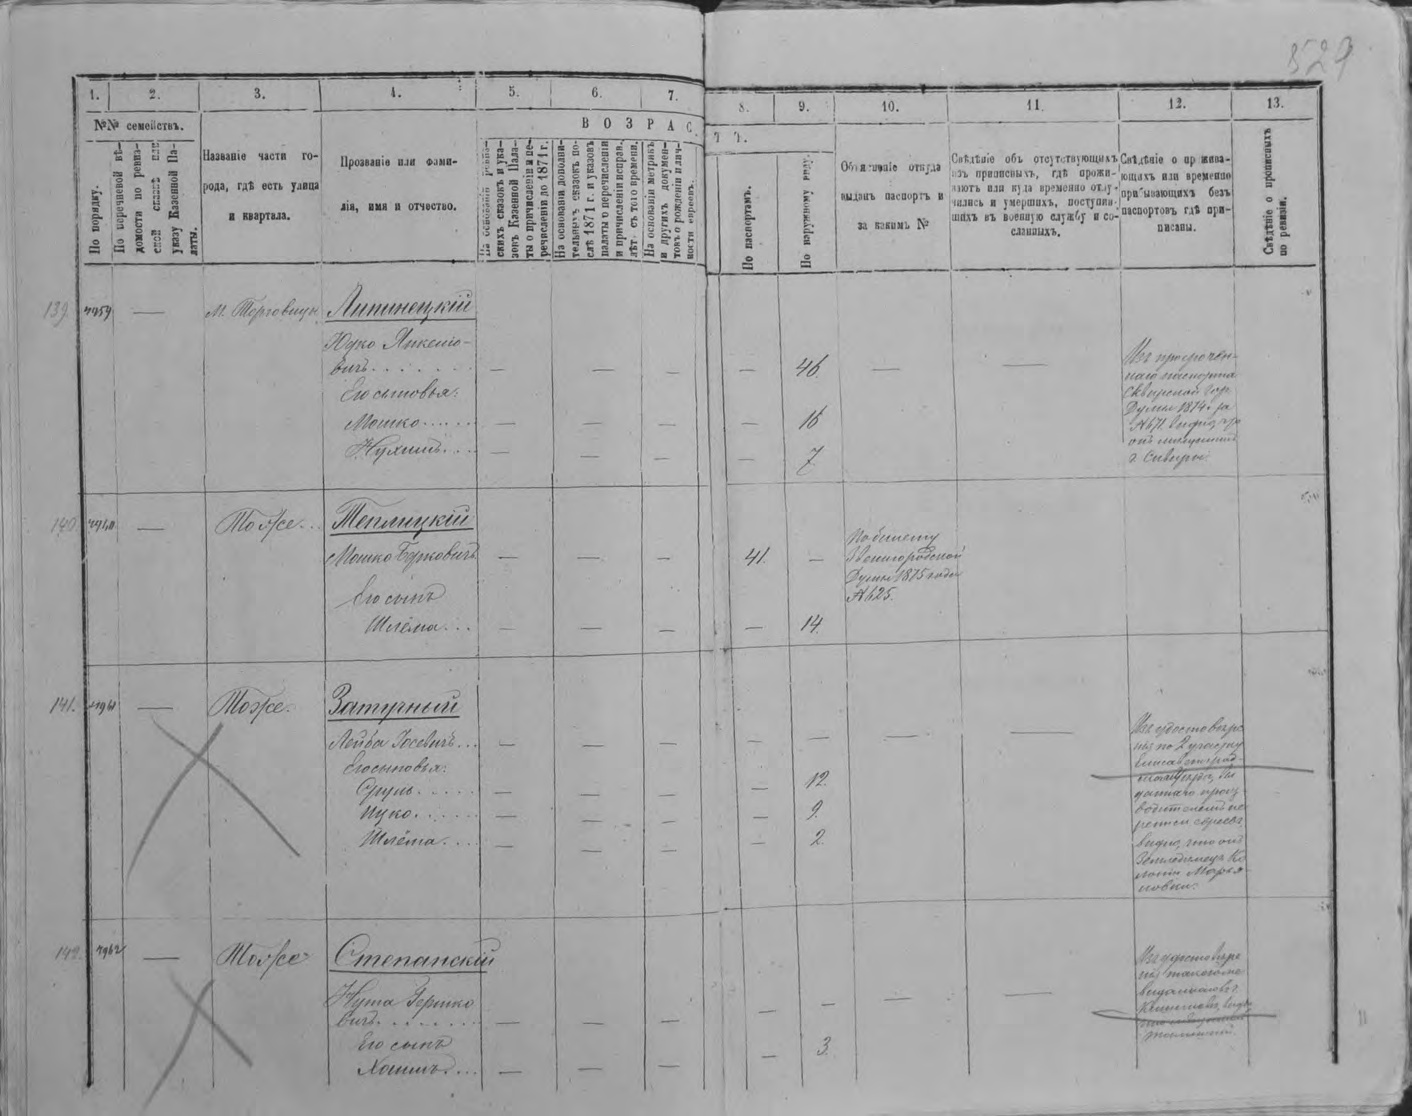 529
1.
2.
3.
4.
5.
6.
7.
8.
9.
10.
11.
12.
13.
№№ семействъ.
По порядку.
По перечневой вѣ-
домости по ревиз-
ской сказкѣ или
указу Казенной Па-
латы.
Названіе части го-
рода, гдѣ есть улица
и квартала.
Прозваніе или фами-
лія, имя и отчество.
ВОЗРАС
Т Ъ.
На основаніи ревиз-
скихъ сказокъ и ука-
зовъ Казенной Пала-
ты о причисленіи и пе-
речисленіи до 1871 г.
На основаніи дополни-
тельныхъ сказокъ по-
слѣ 1871 г. и указовъ
палаты о перечисленіи
и причисленіи исправ.
лѣт. съ того времени.
На основаніи метрикъ
и другихъ докумен-
товъ о рожденіи и лич-
ности евреевъ.
По паспортамъ.
По наружному виду.
Объясненіе откуда
выданъ паспортъ и
за какимъ №
Свѣдѣніе объ отсутствующихъ
изъ приписныхъ, гдѣ прожи-
ваютъ или куда временно отлу-
чились и умершихъ, поступив-
шихъ въ военную службу и со-
сланныхъ.
Свѣдѣніе о прожива-
ющихъ или временно
прибывающихъ безъ
паспортовъ гдѣ при-
писаны.
Свѣдѣніе о прописныхъ
по ревизіи.
139. 7959 — М. Торговицы Липинецкій
Юдко Янкеліо-
вичъ — — — — 46. — —
Его сыновья:
Мошко — — — — 16
Нухимъ — — — — 7.
Изъ просрочен-
наго паспорта
Сквирской Гор.
Думы 1874 г. за
№ 671.
г. Сквиры.
140. 7960 — Тоже. Теплицкій
Мошко Берковичъ — — — 41. —
По билету
Звенигородской
Думы 1875 года
№ 625.
Его сынъ
Шлёма — — — — 14.
141. 7961 — Тоже. Затучный
Лейба Іосевичъ — — — — — — —
Его сыновья:
Сруль — — — — 12.
Ицко — — — — 9.
Шлёма — — — — 2.
Изъ удостовѣре
нія по 2 участку
Елисаветград-
выданнаго
видно, что онъ
Земледелецъ Ко
лоніи Марья-
новки.
142. 7962 — Тоже Степанскій
Нута Гершко
вичъ — — — — — — —
Его сынъ
Хаимъ — — — — 3.
Изъ удостовѣре
нія такого же